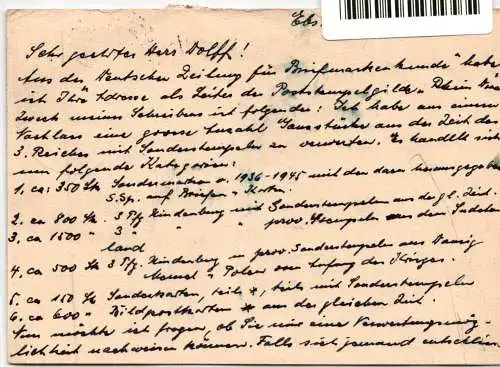 Ebs
Sehr geehrter Herr Wolff!
Aus der Deutschen Zeitung für Briefmarkenkunde" habe
ich Ihre Adresse als Leiter der Poststempelgilde „Rhein
Zweck meines Schreibens ist folgender: Ich habe aus einem
Nachlass eine grosse Anzahl Ganzstücke aus der Zeit des
3. Reiches mit Sonderstempeln zu verwerten. Es handelt sich
um folgende Kategorien:
1. ca: 350 Stk Sondermarken v. 1936-1945 mit den dazu herausgegeben
S.St. auf Briefen u. Karten.
2. ca 800 Stk. 3 Pfg Hindenburg mit Sonderstempeln aus der gl. Zeit.
3. ca 1500 " 3 " " " prov. Stempeln aus dem Sudeten
land
4. ca 500 Stk 3 Pfg Hindenburg m prov. Sonderstempeln aus Danzig
Memel u Polen von Anfang des Krieges.
5. ca 150 Stk Sonderkarten, teils *, teils mit Sonderstempeln
6. ca 600 " Bildpostkarten * aus der gleichen Zeit.
Nun möchte ich fragen, ob Sie mir eine Verwertungsmög-
lichkeit nachweisen können. Falls sich jemand